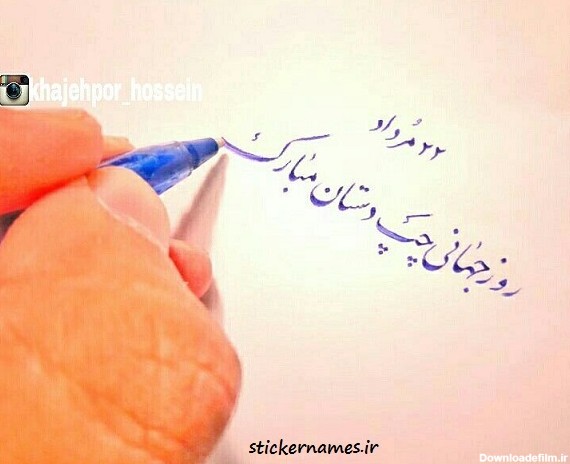 khajehpor_hossein
۲۲ مُرداد
روز جهانی چپ دستان مبارک
stickernames.ir
Downloadefilm.ir